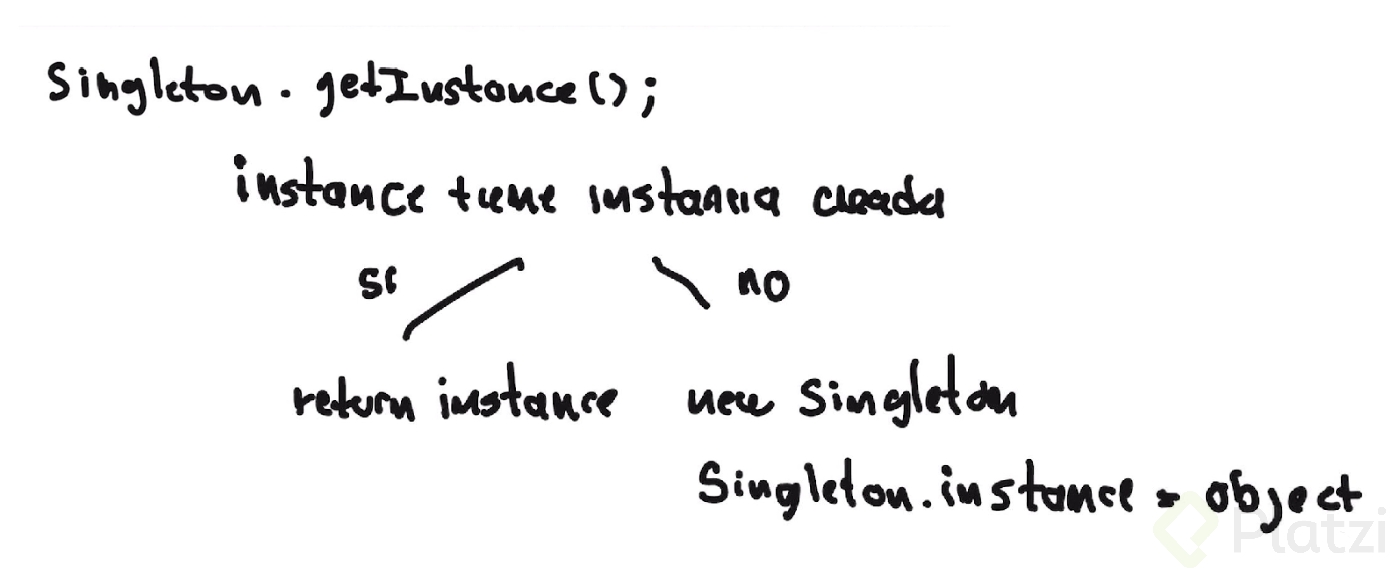 Singleton.getInstance();
instance tiene instancia creada
si
no
return instance
new Singleton
Singleton.instance = object
Platzi